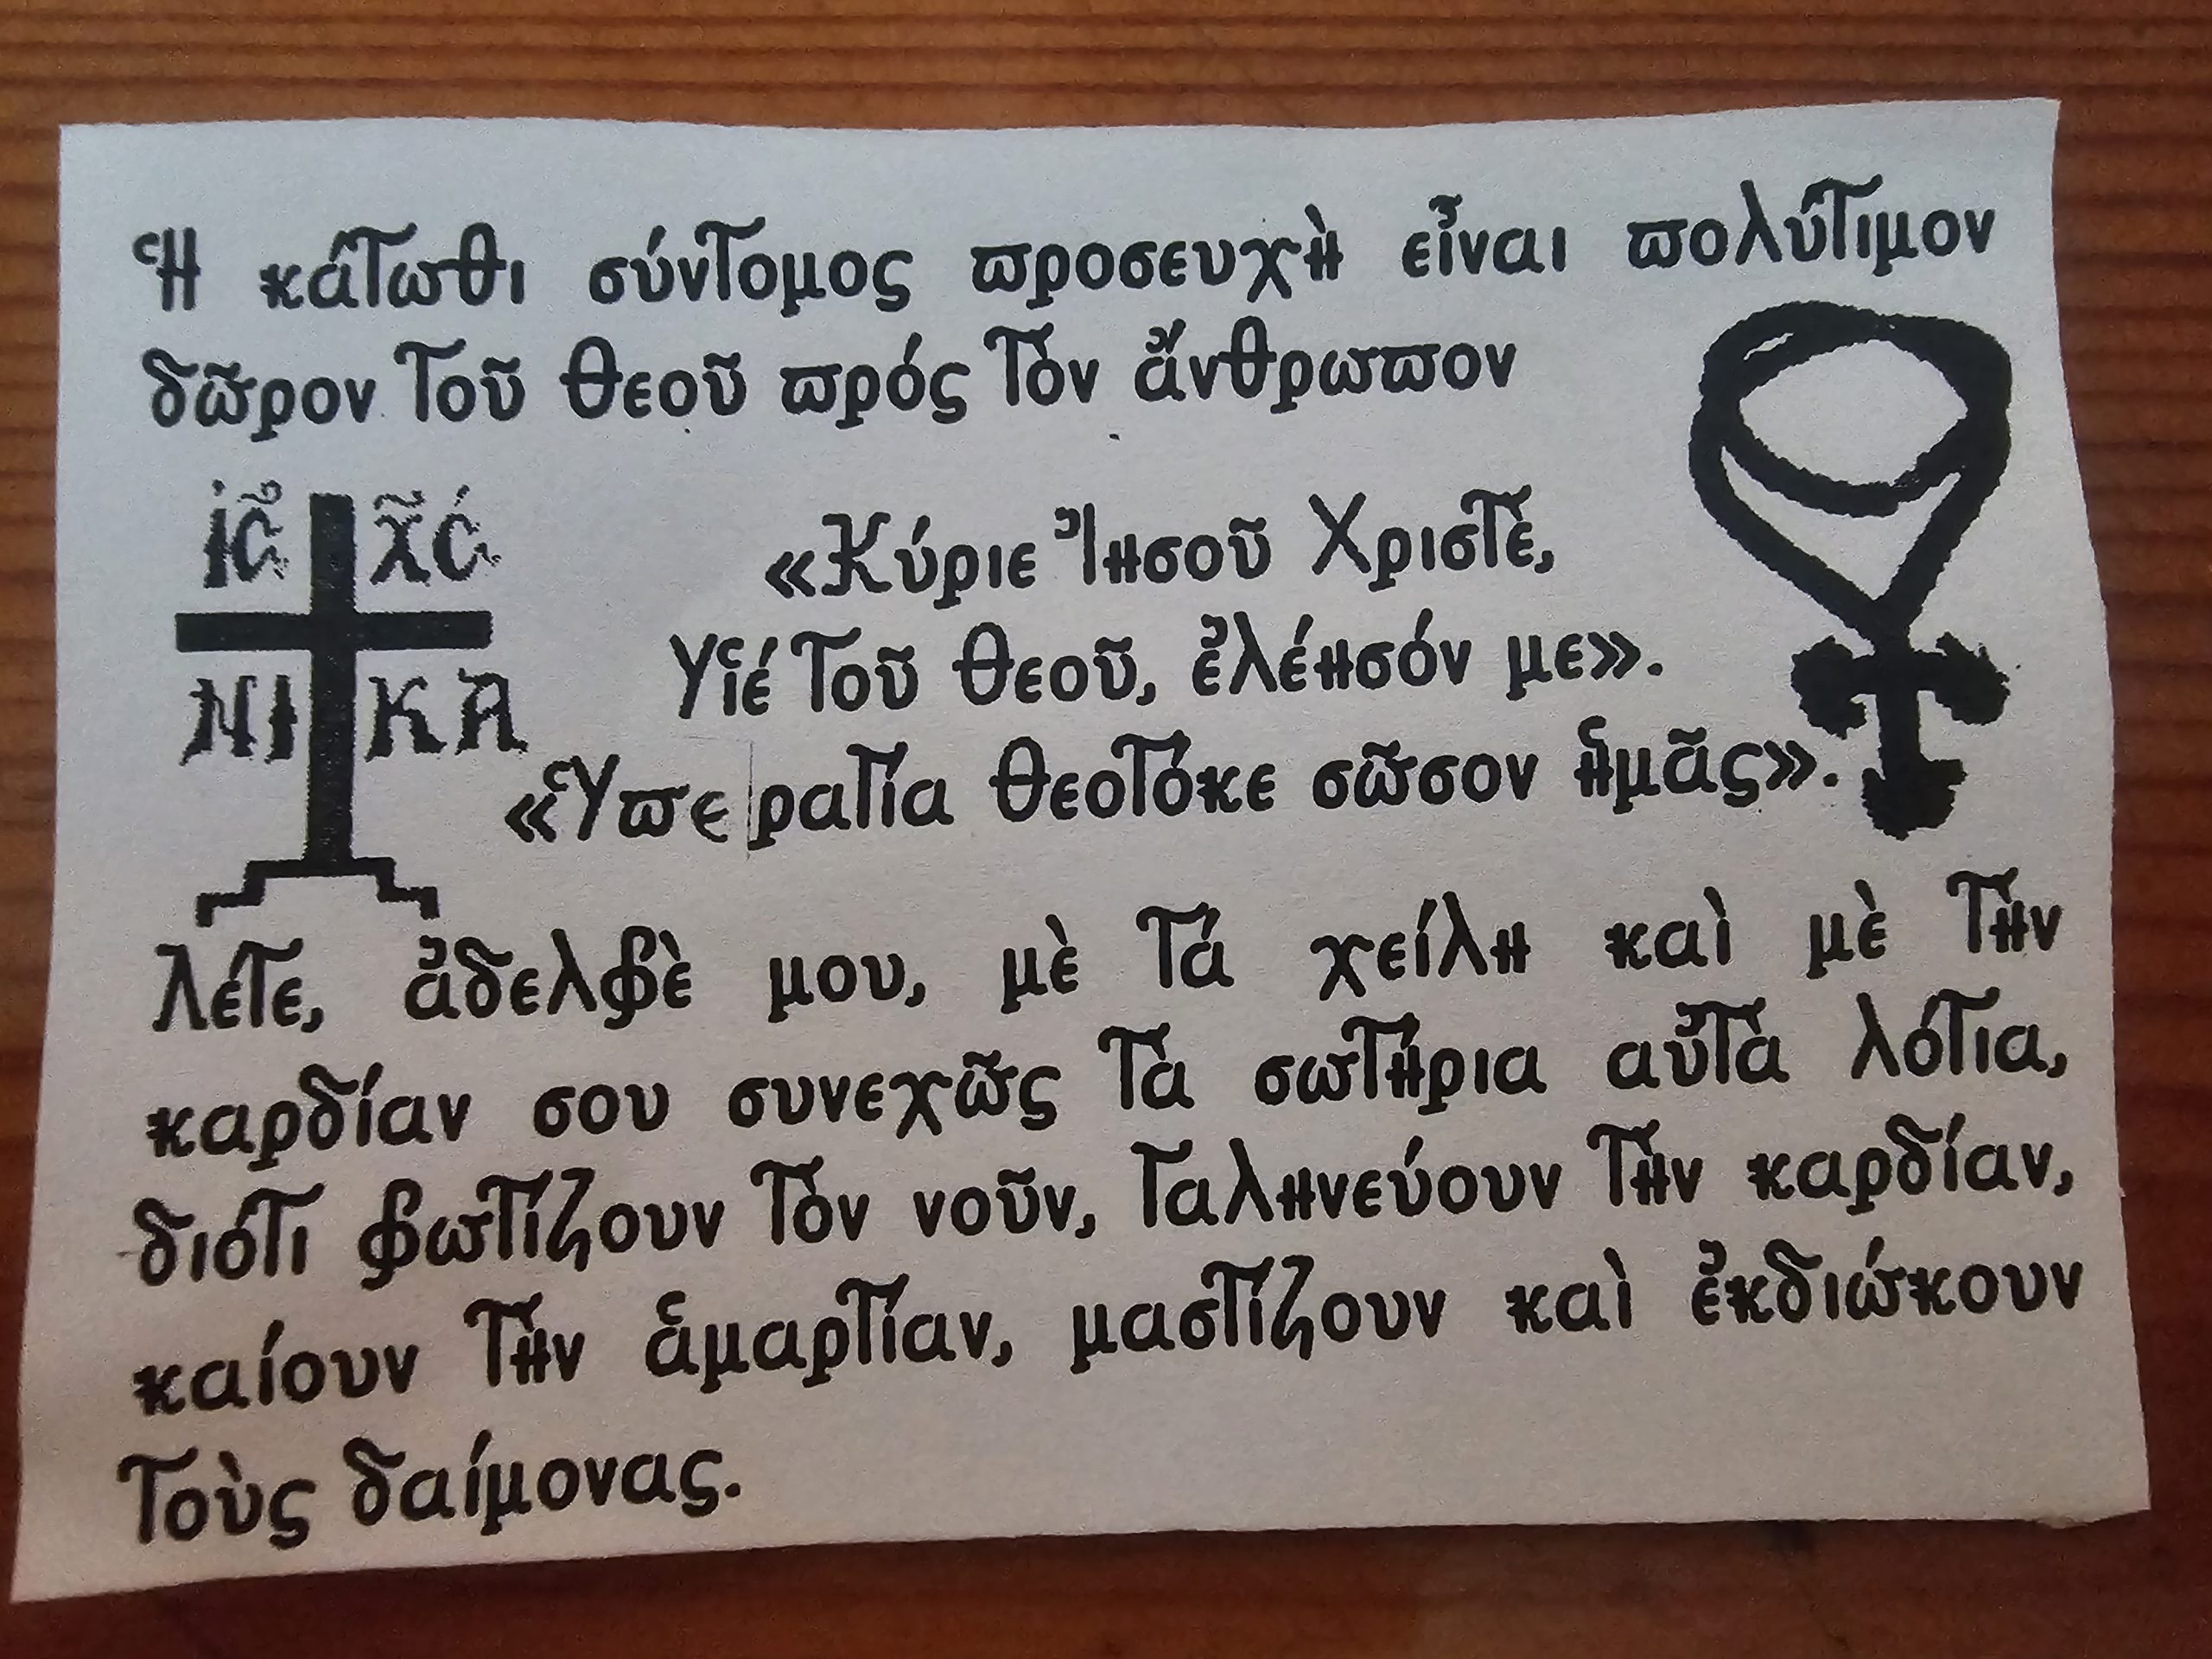 Ἡ κάτωθι σύντομος προσευχὴ εἶναι πολύτιμον
δῶρον τοῦ Θεοῦ πρός τόν ἄνθρωπον
ἸC ΧC
ΝΙ ΚΑ
«Κύριε Ἰησοῦ Χριστέ,
Υἱέ τοῦ Θεοῦ, ἐλέησόν με».
«Ὑπεραγία Θεοτόκε σῶσον ἡμᾶς».
Λέγε, ἀδελφὲ μου, μὲ τά χείλη καὶ μὲ τὴν
καρδίαν σου συνεχῶς τὰ σωτήρια αὐτὰ λόγια,
διότι φωτίζουν τόν νοῦν, γαληνεύουν τὴν καρδίαν,
καίουν τὴν ἁμαρτίαν, μαστίζουν καὶ ἐκδιώκουν
τοὺς δαίμονας.